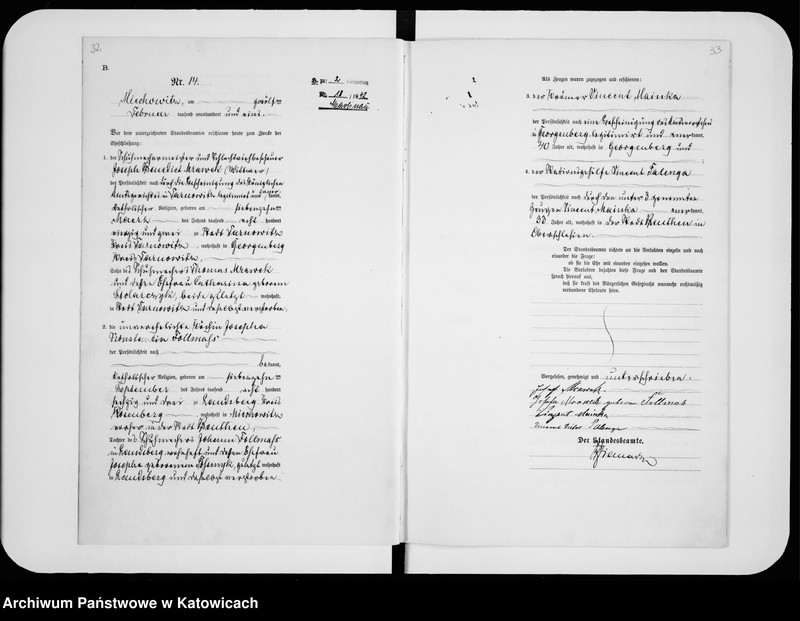 32
B.
Nr. 14.
Miechowitz, am zwölf ten
Februar tausend neunhundert und eins.
Vor dem unterzeichneten Standesbeamten erschienen heute zum Zwecke der
Eheschließung:
1. der Schuhmachermeister und
Joseph Benedict Mrawek (Wittwer)
der Persönlichkeit nach durch die Bescheinigung des Königlichen
Amtsgerichts in Tarnowitz legitimirt und kannt,
katholischer Religion, geboren am siebenzehn ten
März des Jahres tausend acht hundert
vierzig und zwei in Stadt Tarnowitz
Kreis Tarnowitz, wohnhaft in Georgenberg
Kreis Tarnowitz,
Sohn des Schuhmachers Thomas Mrawek
und dessen Ehefrau Catharina geborene
Stolarczyk, beide zuletzt wohnhaft
in Stadt Tarnowitz und daselbst verstorben,
2. die unverehelichte Köchin Josepha
Follmahs
der Persönlichkeit nach
be kannt,
katholischer Religion, geboren am siebenzehn ten
September des Jahres tausend acht hundert
sechzig und drei in Landsberg Kreis
Rosenberg, wohnhaft in Miechowitz
vorher in der Stadt Beuthen,
Tochter des Schuhmachers Johann Follmahs
in Landsberg wohnhaft und dessen Ehefrau
Josepha geborenen zuletzt wohnhaft
in Landsberg und daselbst verstorben.
33
Als Zeugen waren zugezogen und erschienen:
3. der Krämer Vincent Mainka
der Persönlichkeit nach eine Bescheinigung des Amtsvorstehers
in Georgenberg legitimirt und aner kannt,
40 Jahre alt, wohnhaft in Georgenberg und
4. der Stationsgehilfe Vincent Palenga
der Persönlichkeit nach durch den unter 3. genannten
Zeugen Vincent Mainka aner kannt,
33 Jahre alt, wohnhaft in der Stadt Beuthen in
Oberschlesien.
Der Standesbeamte richtete an die Verlobten einzeln und nach
einander die Frage:
ob sie die Ehe mit einander eingehen wollen.
Die Verlobten bejahten diese Frage und der Standesbeamte
sprach hierauf aus,
daß sie kraft des Bürgerlichen Gesetzbuchs nunmehr rechtmäßig
verbundene Eheleute seien.
Vorgelesen, genehmigt und unterschrieben:
Josef Mrawek.
Josefa Mrawek geborene Follmas
Vinzent Mainka
Der Standesbeamte.
Archiwum Państwowe w Katowicach